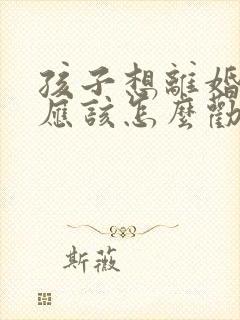 孩子想離婚
應該怎麼勸
斯薇